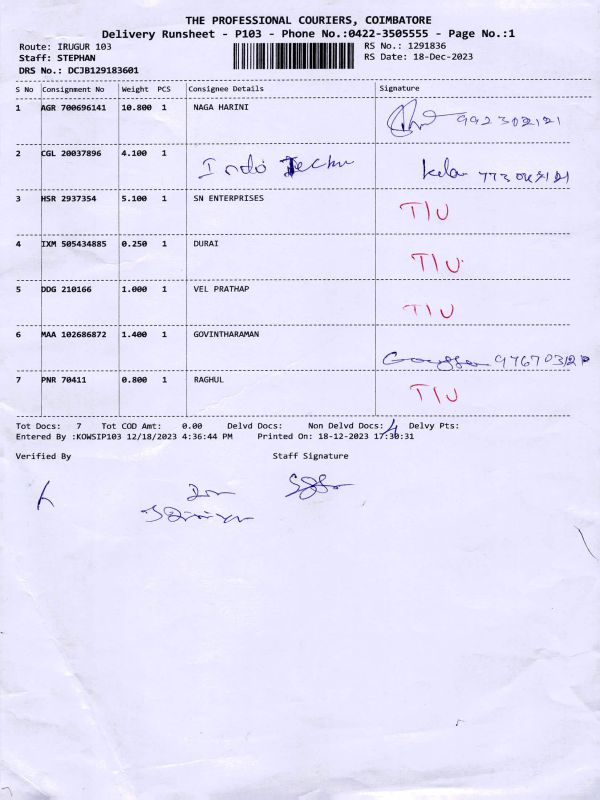 THE PROFESSIONAL COURIERS, COIMBATORE
Delivery Runsheet - P103 - Phone No.:0422-3505555 - Page No.:1
Route: IRUGUR 103 RS No.: 1291836
Staff: STEPHAN RS Date: 18-Dec-2023
DRS No.: DCJB129183601
S No Consignment No Weight PCS Consignee Details Signature
1 AGR 700696141 10.800 1 NAGA HARINI
2 CGL 20037896 4.100 1 Indo Techu
3 HSR 2937354 5.100 1 SN ENTERPRISES T/U
4 IXM 505434885 0.250 1 DURAI T/U
5 DDG 210166 1.000 1 VEL PRATHAP T/U
6 MAA 102686872 1.400 1 GOVINTHARAMAN
7 PNR 70411 0.800 1 RAGHUL T/U
Tot Docs: 7 Tot COD Amt: 0.00 Delvd Docs: Non Delvd Docs: 4 Delvy Pts:
Entered By :KOWSIP103 12/18/2023 4:36:44 PM Printed On: 18-12-2023 17:30:31
Verified By Staff Signature